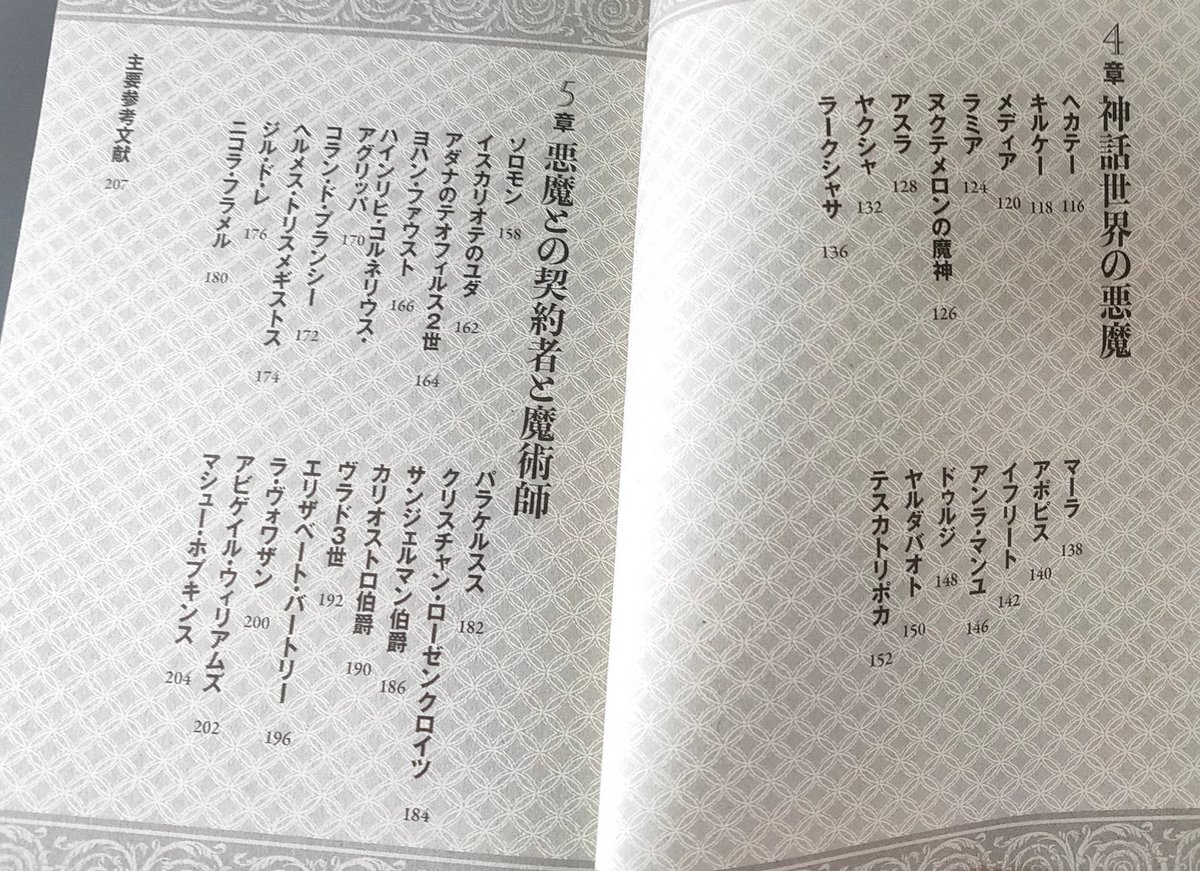 4章 神話世界の悪魔
ヘカテー 116
キルケー 118
メディア 120
ラミア 124
ヌクテメロンの魔神 126
アスラ 128
ヤクシャ 132
ラークシャサ 136
マーラ 138
アポピス 140
イフリート 142
アンラ・マンユ 146
ドゥルジ 148
ヤルダバオト 150
テスカトリポカ 152
5章 悪魔との契約者と魔術師
ソロモン 158
イスカリオテのユダ 162
アダナのテオフィルス2世 164
ヨハン・ファウスト 166
ハインリヒ・コルネリウス・
アグリッパ 170
コラン・ド・プランシー 172
ヘルメス・トリスメギストス 174
ジル・ド・レ 176
ニコラ・フラメル 180
パラケルスス 182
クリスチャン・ローゼンクロイツ 184
サンジェルマン伯爵 186
カリオストロ伯爵 190
ヴラド3世 192
エリザベート・バートリー 196
ラ・ヴォワザン 200
アビゲイル・ウィリアムズ 202
マシュー・ホプキンス 204
主要参考文献 207